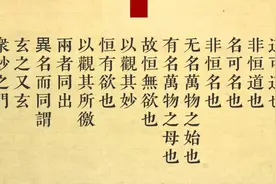 道可道也
非恒道也
名可名也
非恒名也
无名萬物之始也
有名萬物之母也
故恒無欲也
以觀其妙
恒有欲也
以觀其所徼
兩者同出
異名而同謂
玄之又玄
眾妙之門